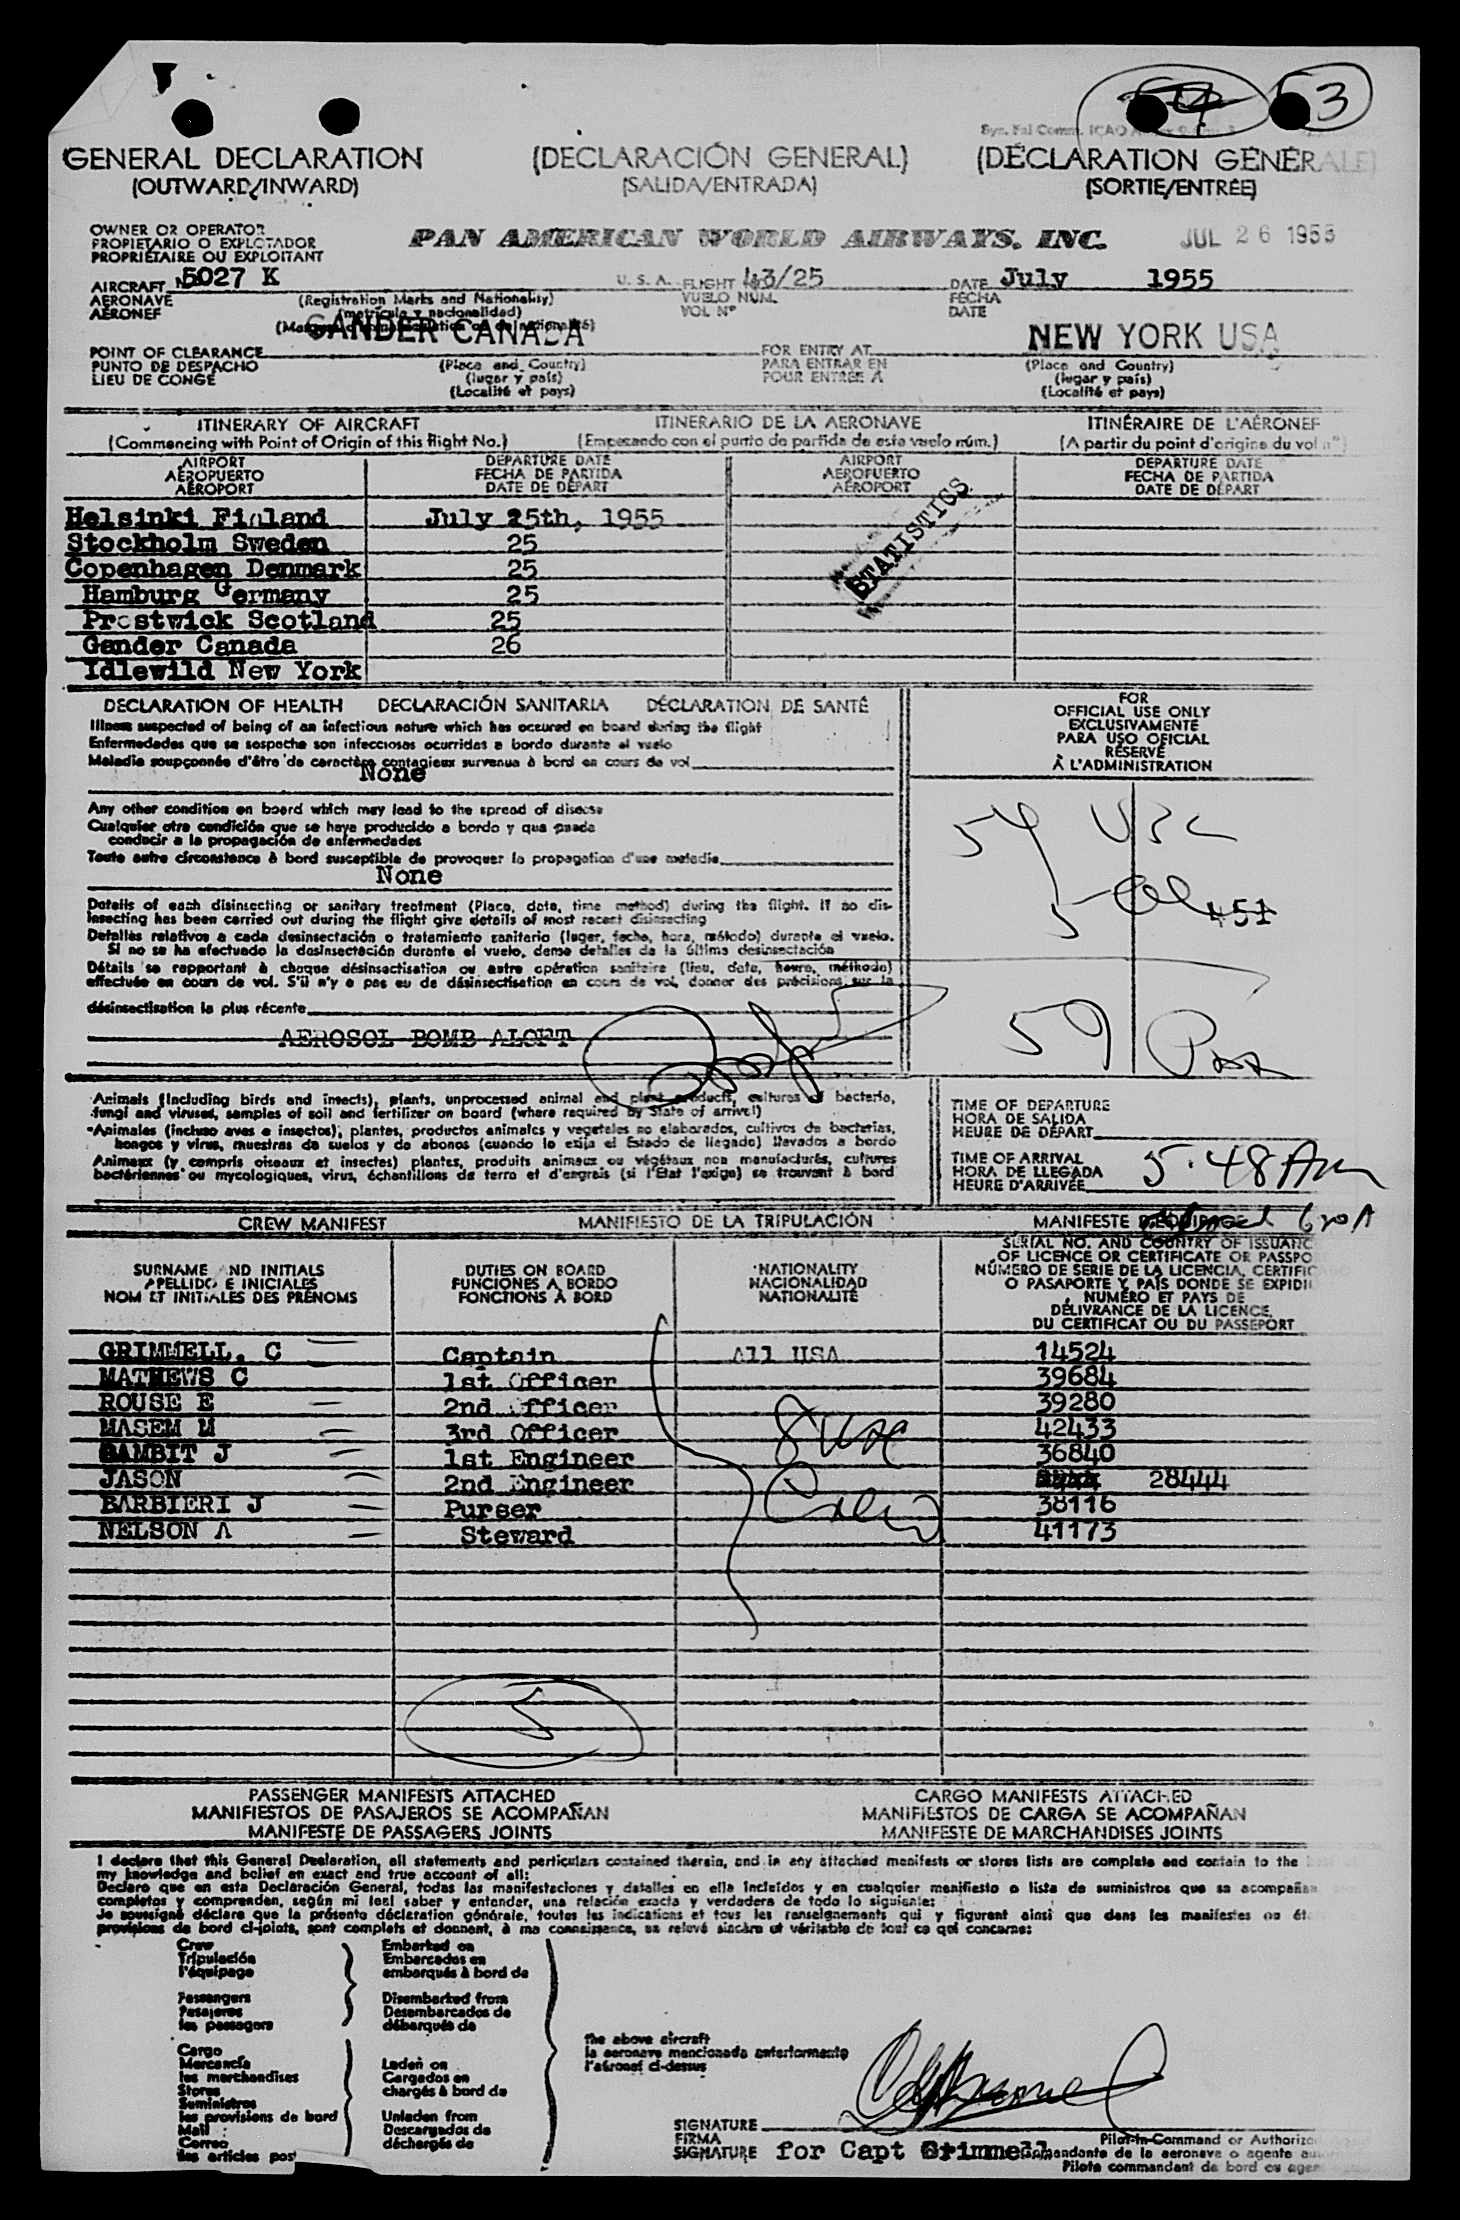 53
GENERAL DECLARATION
(OUTWARD/INWARD)
(DECLARACIÓN GENERAL)
(SALIDA/ENTRADA)
(DÉCLARATION GÉNÉRALE)
(SORTIE/ENTRÉE)
OWNER OR OPERATOR
PROPIETARIO O EXPLOTADOR
PROPRIÉTAIRE OU EXPLOITANT
PAN AMERICAN WORLD AIRWAYS, INC.
JUL 26 1955
AIRCRAFT N 5027 K
AERONAVE
AÉRONEF
(Registration Marks and Nationality)
(matrícula y nacionalidad)
U. S. A. FLIGHT 43/25
VUELO NUM.
VOL Nº
DATE July 1955
FECHA
DATE
POINT OF CLEARANCE GANDER CANADA
PUNTO DE DESPACHO
LIEU DE CONGÉ
(Place and Country)
(lugar y país)
(Localité et pays)
FOR ENTRY AT
PARA ENTRAR EN
POUR ENTRÉE A
NEW YORK USA
(Place and Country)
(lugar y país)
(Localité et pays)
ITINERARY OF AIRCRAFT
(Commencing with Point of Origin of this flight No.)
ITINERARIO DE LA AERONAVE
(Empezando con el punto de partida de este vuelo núm.)
ITINÉRAIRE DE L'AÉRONEF
(A partir du point d'origine du vol nº)
AIRPORT
AEROPUERTO
AÉROPORT
DEPARTURE DATE
FECHA DE PARTIDA
DATE DE DÉPART
AIRPORT
AEROPUERTO
AÉROPORT
DEPARTURE DATE
FECHA DE PARTIDA
DATE DE DÉPART
Helsinki Finland July 25th, 1955
Stockholm Sweden 25
Copenhagen Denmark 25
Hamburg Germany 25
Prestwick Scotland 25
Gander Canada 26
Idlewild New York
STATISTICS
DECLARATION OF HEALTH DECLARACIÓN SANITARIA DÉCLARATION DE SANTÉ
Illness suspected of being of an infectious nature which has occured on board during the flight
Enfermedades que se sospecha son infecciosas ocurridas a bordo durante el vuelo
Maladie soupçonnée d'être de caractère contagieux survenue à bord en cours de vol
None
Any other condition on board which may lead to the spread of disease
Cualquier otra condición que se haya producido a bordo y que pueda
conducir a la propagación de enfermedades
Toute autre circonstance à bord susceptible de provoquer la propagation d'une maladie
None
Details of each disinsecting or sanitary treatment (Place, date, time method) during the flight. If no dis-
insecting has been carried out during the flight give details of most recent disinsecting
Detalles relativos a cada desinsectación o tratamiento sanitario (lugar, fecha, hora, método) durante el vuelo.
Si no se ha efectuado la desinsectación durante el vuelo, dense detalles de la última desinsectación
Détails se rapportant à chaque désinsectisation ou autre opération sanitaire (lieu, date, heure, méthode)
effectuée en cours de vol. S'il n'y a pas eu de désinsectisation en cours de vol, donner des précisions sur la
désinsectisation la plus récente
AEROSOL BOMB ALOFT
FOR
OFFICIAL USE ONLY
EXCLUSIVAMENTE
PARA USO OFICIAL
RÉSERVÉ
À L'ADMINISTRATION
54
5
451
59 Pax
Animals (including birds and insects), plants, unprocessed animal and plant products, cultures of bacteria,
fungi and viruses, samples of soil and fertilizer on board (where required by State of arrivel)
Animales (incluso aves e insectos), plantas, productos animales y vegetales no elaborados, cultivos de bacterias,
hongos y virus, muestras de suelos y de abonos (cuando lo exija el Estado de llegada) llevados a bordo
Animaux (y compris oiseaux et insectes) plantes, produits animaux ou végétaux non manufacturés, cultures
bactériennes ou mycologiques, virus, échantillons de terre et d'engrais (si l'Etat l'exige) se trouvant à bord
TIME OF DEPARTURE
HORA DE SALIDA
HEURE DE DÉPART
TIME OF ARRIVAL
HORA DE LLEGADA
HEURE D'ARRIVÉE
5:48 Am
CREW MANIFEST
MANIFIESTO DE LA TRIPULACIÓN
MANIFESTE D'ÉQUIPAGE
SURNAME AND INITIALS
APELLIDO E INICIALES
NOM ET INITIALES DES PRÉNOMS
DUTIES ON BOARD
FUNCIONES A BORDO
FONCTIONS À BORD
NATIONALITY
NACIONALIDAD
NATIONALITÉ
SERIAL NO. AND COUNTRY OF ISSUANC
OF LICENCE OR CERTIFICATE OR PASSPO
NÚMERO DE SERIE DE LA LICENCIA, CERTIFIC
O PASAPORTE Y PAÍS DONDE SE EXPIDI
NUMÉRO ET PAYS DE
DÉLIVRANCE DE LA LICENCE,
DU CERTIFICAT OU DU PASSEPORT
GRIMMELL, C Captain All USA 14524
MATHEWS C 1st Officer 39684
ROUSE E 2nd Officer 39280
MASEM M 3rd Officer 42433
GAMBIT J 1st Engineer 36840
JASON 2nd Engineer 28444
BARBIERI J Purser 38116
NELSON A Steward 41173
5
PASSENGER MANIFESTS ATTACHED
MANIFIESTOS DE PASAJEROS SE ACOMPAÑAN
MANIFESTE DE PASSAGERS JOINTS
CARGO MANIFESTS ATTACHED
MANIFIESTOS DE CARGA SE ACOMPAÑAN
MANIFESTE DE MARCHANDISES JOINTS
I declare that this General Declaration, all statements and particulars contained therein, and in any attached manifests or stores lists are complete and contain to the
my knowledge and belief an exact and true account of all:
Declaro que en esta Declaración General, todas las manifestaciones y detalles en ella incluídos y en cualquier manifiesto o lista de suministros que se acompañan
completos y comprenden, según mi leal saber y entender, una relación exacta y verdadera de todo lo siguiente:
Je soussigné déclare que la présente déclaration générale, toutes les indications et tous les renseignements qui y figurent ainsi que dans les manifestes ou
provisions de bord ci-joints, sont complets et donnent, à ma connaissance, un relevé sincère et véritable de tout ce qui concerne:
Crew
Tripulación
l'équipage
Passengers
Pasajeros
les passagers
Cargo
Mercancía
les marchandises
Stores
Suministros
les provisions de bord
Mail
Correo
les articles post
Embarked on
Embarcados en
embarqués à bord de
Disembarked from
Desembarcados de
débarqués de
Laden on
Cargados en
chargés à bord de
Unladen from
Descargados de
déchargés de
the above aircraft
la aeronave mencionada anteriormente
l'aéronef ci-dessus
SIGNATURE
FIRMA
SIGNATURE for Capt Grimmell
Pilot-in-Command or Authorize
Comandante de la aeronave o agente au
Pilote commandant de bord ou agen